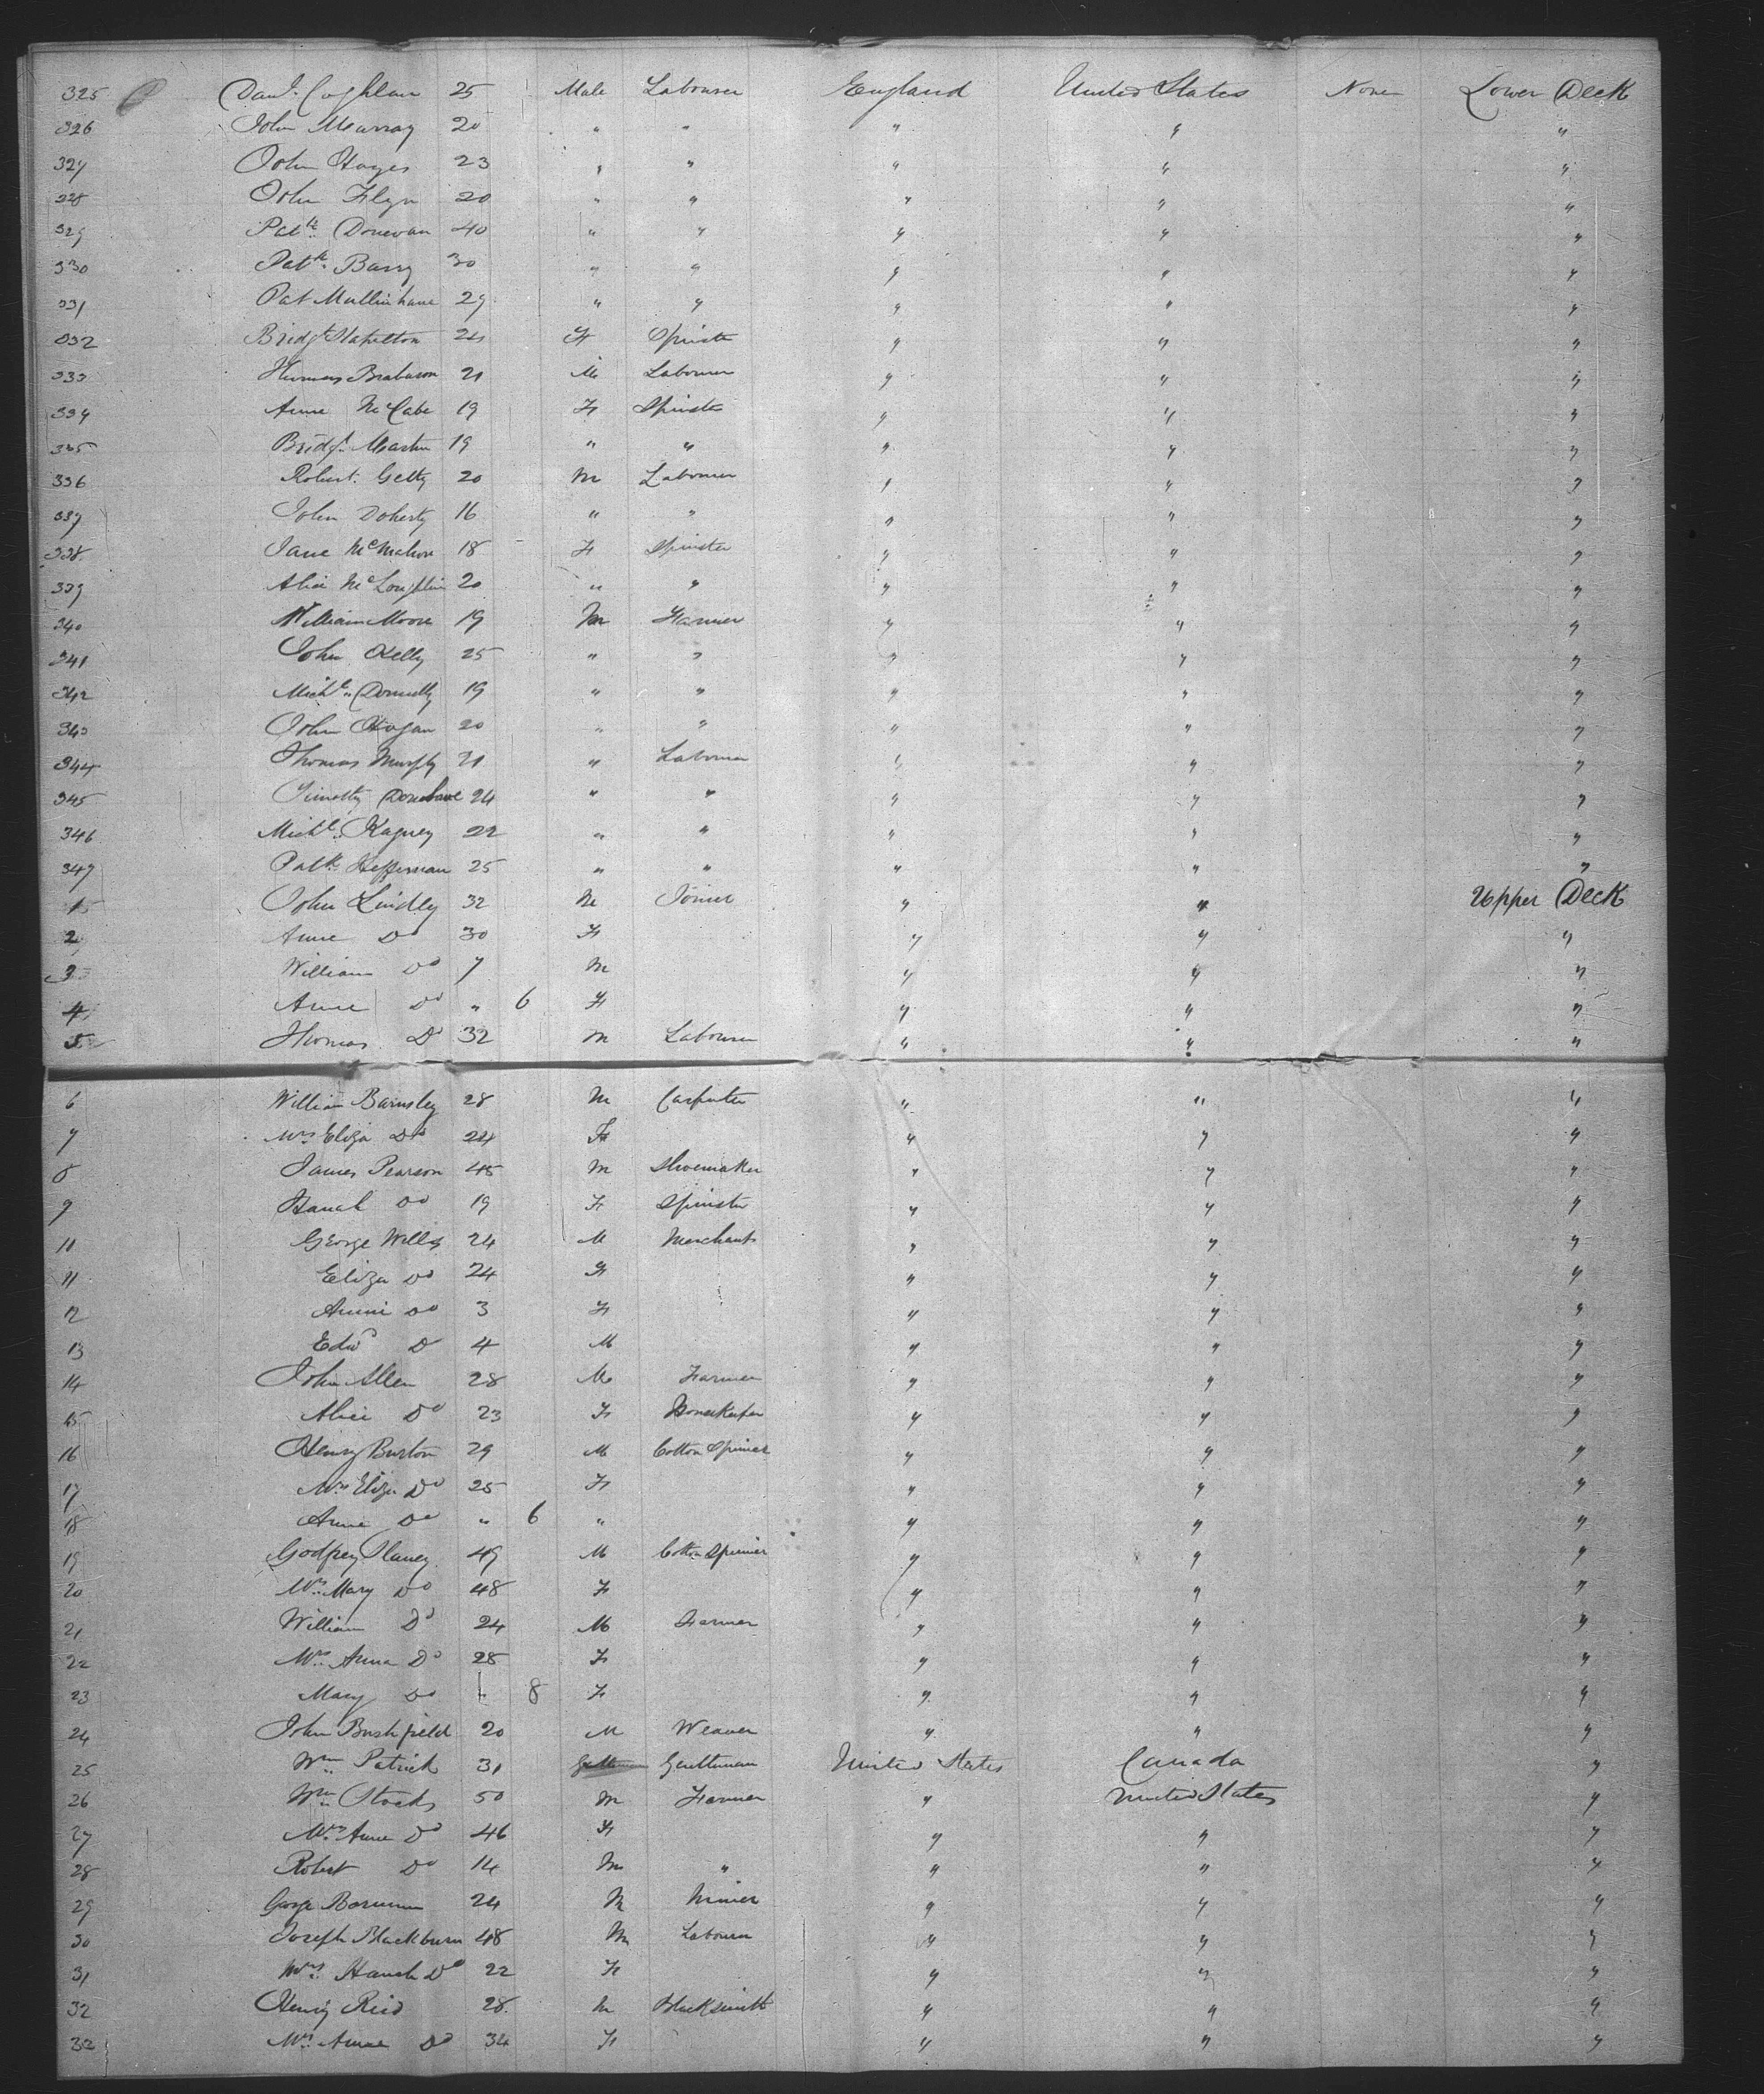 325 Danl. Coghlan 25 Male Labourer England United States None Lower Deck
326 John Murray 20 " " " " "
327 John Hayes 23 " " " " "
328 John Flyn 20 " " " " "
329 Patk. Donevan 40 " " " " "
330 Patk. Barry 30 " " " " "
331 Pat Mullinhane 29 " " " " "
332 Bridgt Stapelton 24 F Spinster " " "
333 Thomas Brabason 21 M Labourer " " "
334 Anne McCabe 19 F Spinster " " "
335 Bridgt. Martin 19 " " " " "
336 Robert. Getty 20 M Labourer " " "
337 John Doherty 16 " " " " "
338 Jane McMahon 18 F Spinster " " "
339 Alice McLoughlin 20 " " " " "
340 William Moore 19 M Farmer " " "
341 John Kelly 25 " " " " "
342 Michl. Donnelly 19 " " " " "
343 John Hogan 20 " " " " "
344 Thomas Murphy 21 " Labourer " " "
345 Timothy Donohue 24 " " " " "
346 Michl. Kagney 22 " " " " "
347 Patk Heffernan 25 " " " " "
1 John Lindley 32 M Joiner " " Upper Deck
2 Anne Do 30 F " " "
3 William Do 7 M " " "
4 Anne Do " 6 F " " "
5 Thomas Do 32 M Labourer " " "
6 William Barnsley 28 M Carpenter " " "
7 Mrs Eliza Do 24 F " " "
8 James Pearson 45 M Shoemaker " " "
9 Hanah Do 19 F Spinster " " "
10 George Willis 24 M Merchant " " "
11 Eliza Do 24 F " " "
12 Annie Do 3 F " " "
13 Edwd Do 4 M " " "
14 John Allen 28 M Farmer " " "
15 Alice Do 23 F Housekeeper " " "
16 Henry Burton 29 M Cotton Spinner " " "
17 Mrs Eliza Do 25 F " " "
18 Anne Do " 6 " " " "
19 Godfrey Slaney 49 M Cotton Spinner " " "
20 Mrs. Mary Do 48 F " " "
21 William Do 24 M Farmer " " "
22 Mrs. Anna Do 28 F " " "
23 Mary Do 8 F " " "
24 John Bushfield 20 M Weaver " " "
25 Wm. Patrick 31 Gentleman United States Canada "
26 Wm. Stocks 50 M Farmer " United States "
27 Mrs. Anne Do 46 F " " "
28 Robert Do 14 M " " " "
29 George 24 M Miner " " "
30 Joseph Blackburn 48 M Labourer " " "
31 Mrs. Hanah Do 22 F " " "
32 Henry Reid 28 M Blacksmith " " "
33 Mrs. Anne Do 34 F " " "